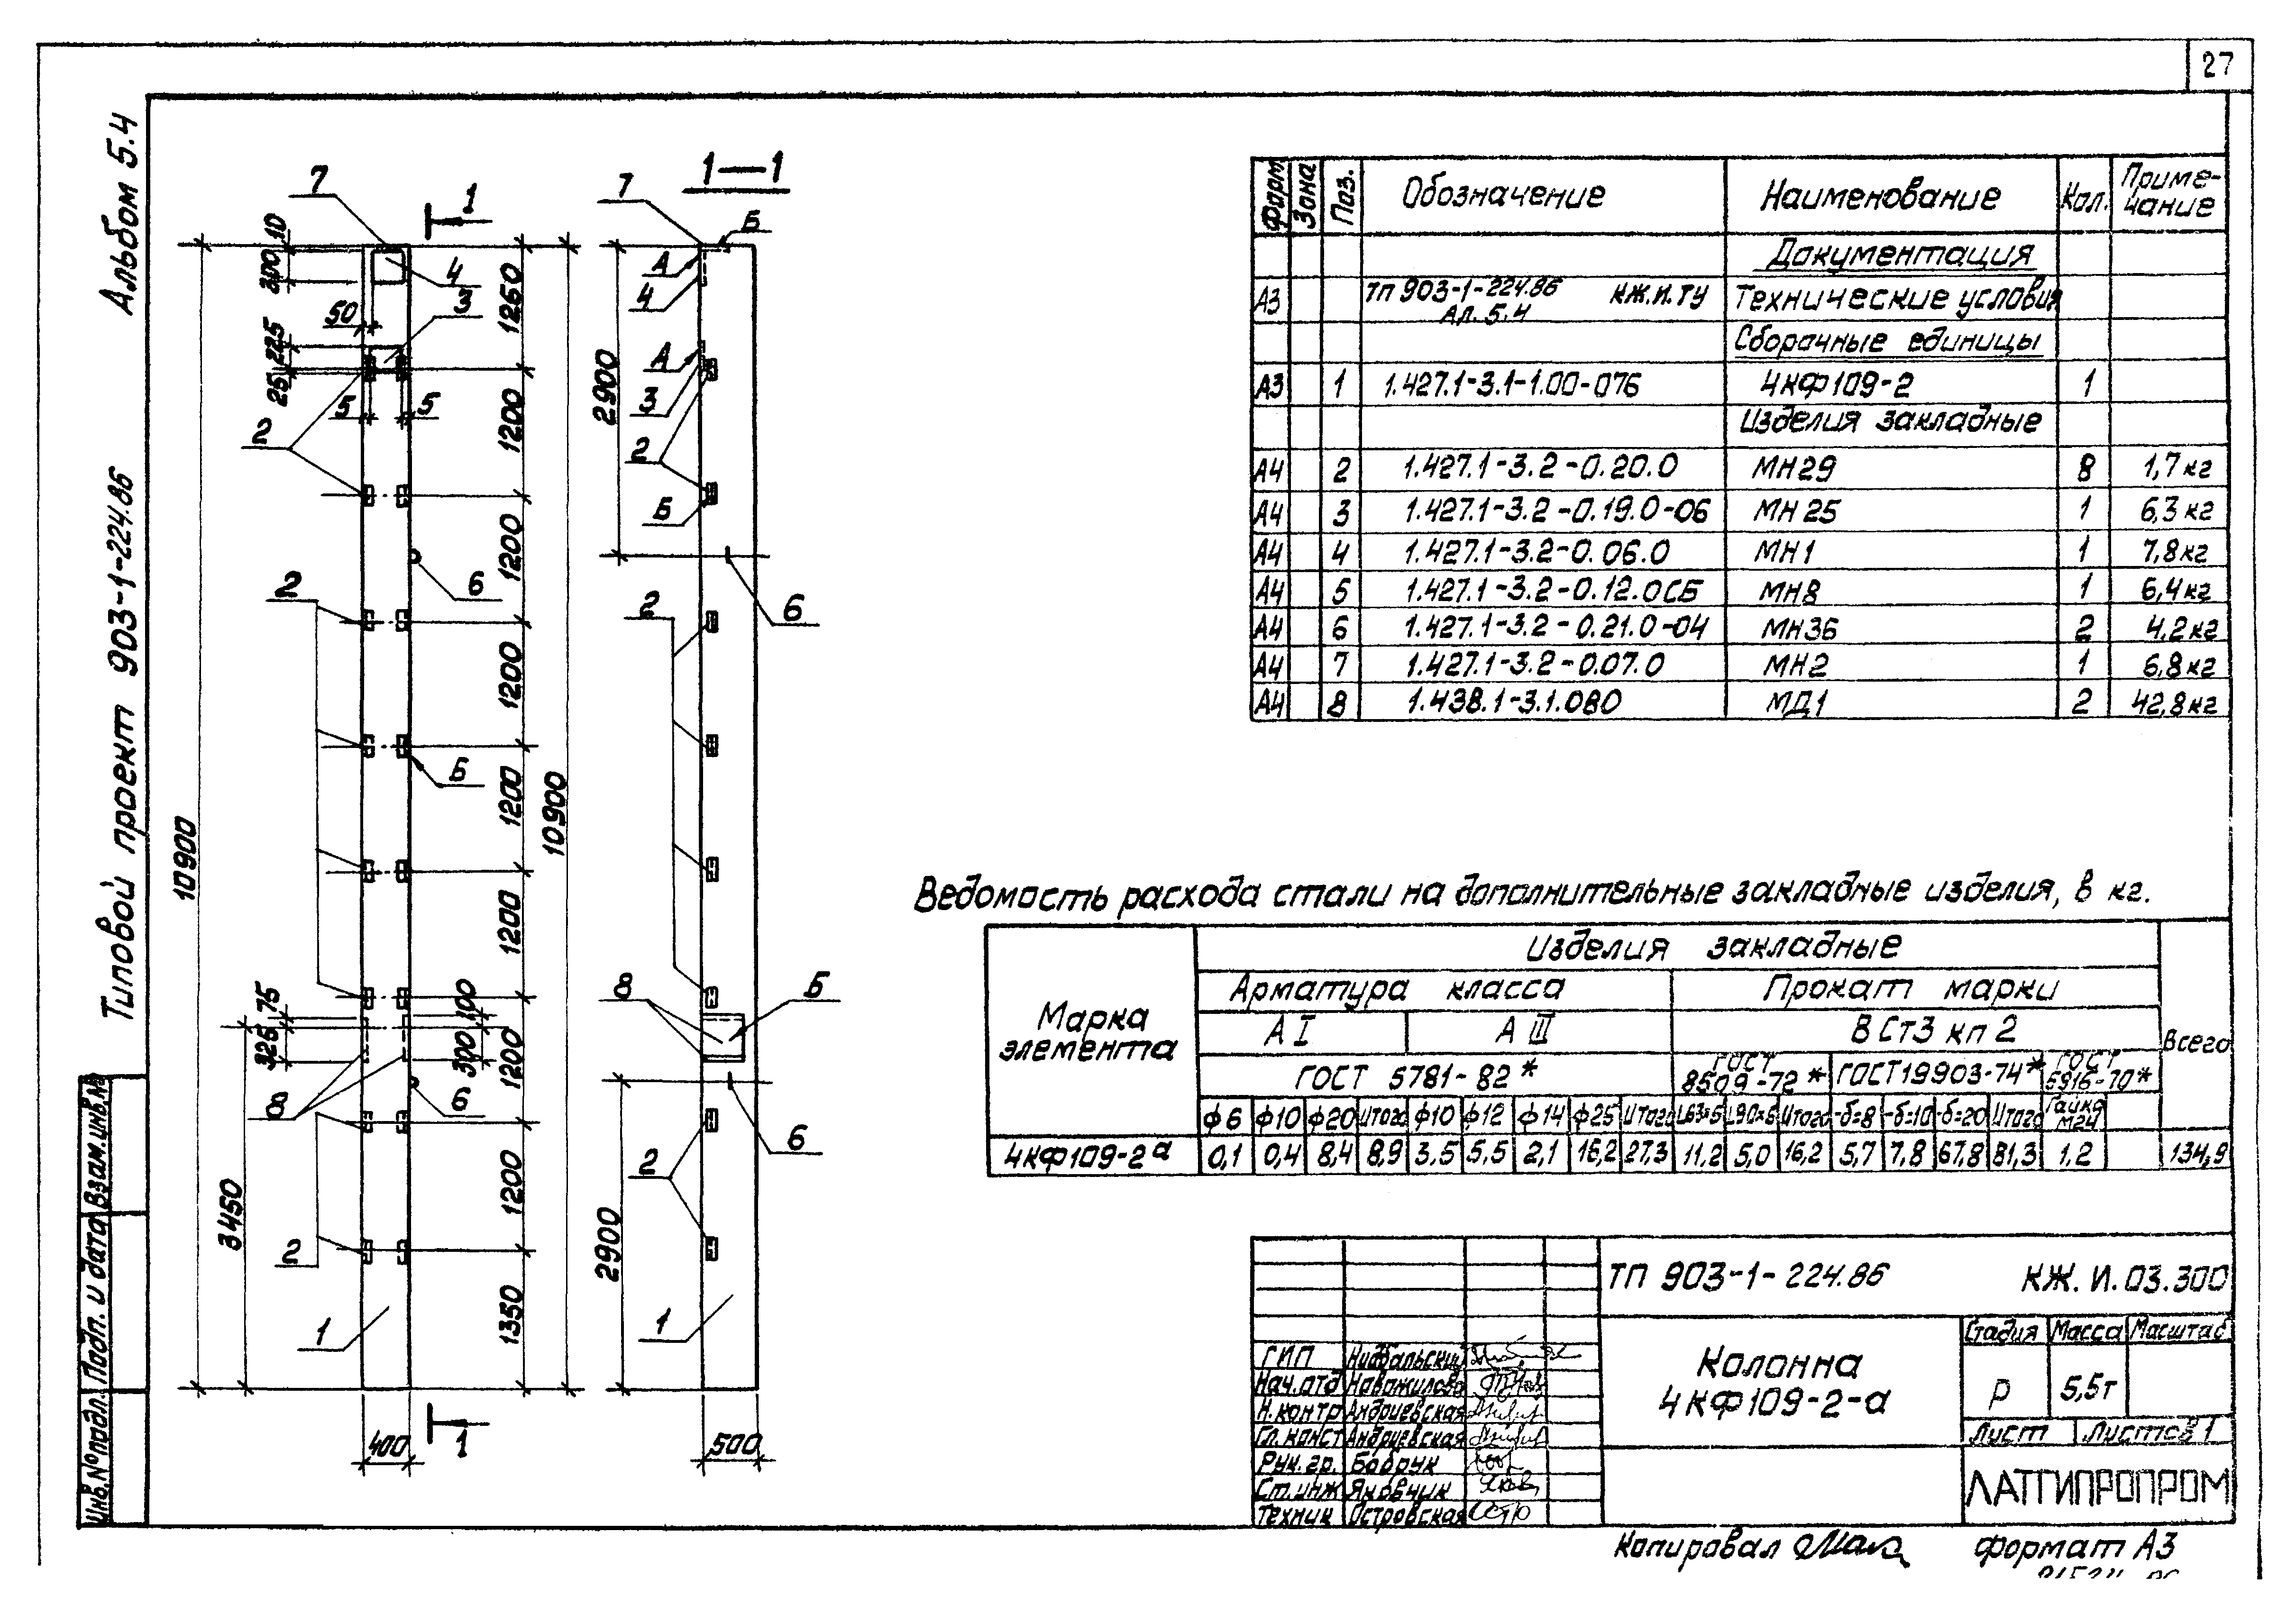 27
Альбом 5.4
Типовой проект 903-1-224.86
Взам.инв.№
Подп. и дата
Инв.№ подл.
7
1
10
300
4
3
50
225
25
5 5
2
2
6
Б
2
8
6
75
325
100
300
3450
10900
10900
1260
1200
1200
1200
1200
1200
1200
1200
1350
1
400
1
1—1
7
Б
А
4
А
3
2
Б
2900
6
2
8
Б
6
2
2900
1
500
Форм Зона Поз. Обозначение Наименование Кол. Приме-чание
Документация
А3 ТП 903-1-224.86 КЖ.И.ТУ Технические условия
Ал. 5.4
Сборочные единицы
А3 1 1.427.1-3.1-1.00-076 4КФ109-2 1
Изделия закладные
А4 2 1.427.1-3.2-0.20.0 МН29 8 1,7кг
А4 3 1.427.1-3.2-0.19.0-06 МН25 1 6,3кг
А4 4 1.427.1-3.2-0.06.0 МН1 1 7,8кг
А4 5 1.427.1-3.2-0.12.0СБ МН8 1 6,4кг
А4 6 1.427.1-3.2-0.21.0-04 МН36 2 4,2кг
А4 7 1.427.1-3.2-0.07.0 МН2 1 6,8кг
А4 8 1.438.1-3.1.080 МД1 2 42,8кг
Ведомость расхода стали на дополнительные закладные изделия, в кг.
Марка элемента
Изделия закладные
Арматура класса Прокат марки
А I А III ВСт3 кп 2 Всего
ГОСТ 5781-82* ГОСТ 8509-72* ГОСТ19903-74* ГОСТ 5916-70*
ф6 ф10 ф20 Итого ф10 ф12 ф14 ф25 Итого L63×5 L90×6 Итого -б=8 -б=10 -б=20 Итого Гайка М24
4КФ109-2а 0,1 0,4 8,4 8,9 3,5 5,5 2,1 16,2 27,3 11,2 5,0 16,2 5,7 7,8 67,8 81,3 1,2 134,9
ТП 903-1-224.86 КЖ.И.03.300
ГИП
Нач.отд Новожилова
Н.контр Андриевская
Гл.конст Андриевская
Рук.гр. Бобрук
Ст.инж Яковчик
Техник Островская
Колонна
4КФ109-2-а
Стадия Масса Масштаб
Р 5,5т
Лист Листов 1
ЛАТГИПРОПРОМ
Копировал
формат А3